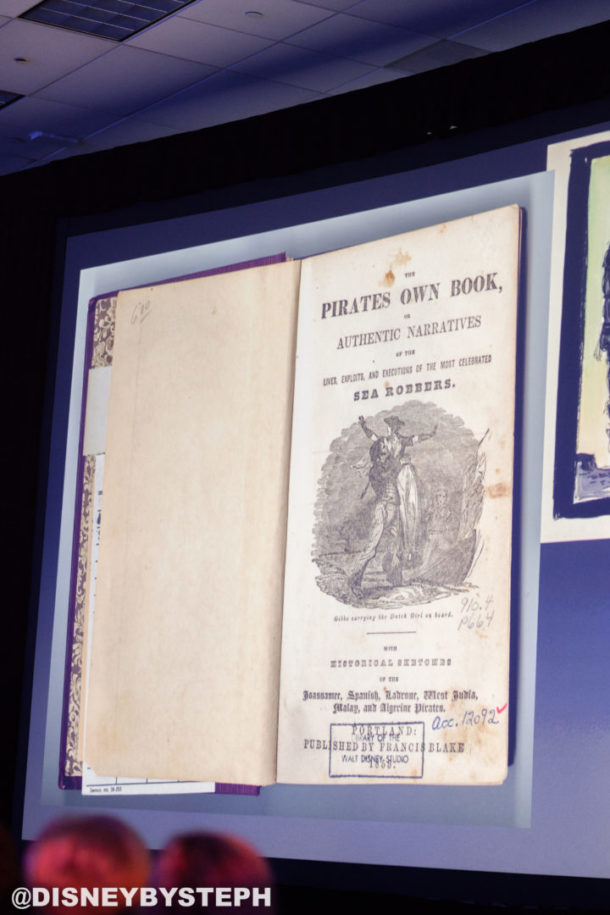 600
THE
PIRATES OWN BOOK,
OR
AUTHENTIC NARRATIVES
OF THE
LIVES, EXPLOITS, AND EXECUTIONS OF THE MOST CELEBRATED
SEA ROBBERS.
Gibbs carrying the Dutch Girl on board.
910.4
P664
WITH
HISTORICAL SKETCHES
OF THE
Joassamee, Spanish, Ladrone, West India,
Malay, and Algerine Pirates.
acc. 12092
PORTLAND:
LIBRARY OF THE
PUBLISHED BY FRANCIS BLAKE
WALT DISNEY STUDIO
@DISNEYBYSTEPH